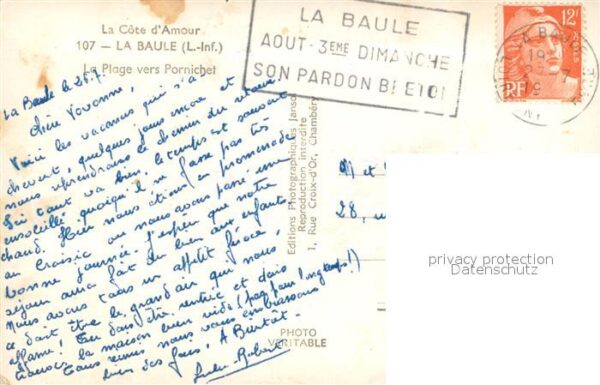 La Côte d'Amour
107 - LA BAULE (L.-Inf.)
La Plage vers Pornichet
LA BAULE
AOUT - 3EME DIMANCHE
SON PARDON BRETON
12F
POSTES
RF
LA BAULE
La Baule le 25.9.
Chère Yvonne,
Voici les vacances qui s'a
chèvent, quelques jours encore et
nous reprendrons le chemin du retour
Ici tout va bien, le temps est souvent
ensoleillé quoiqu'il ne fasse pas très
chaud. Hier nous étions en promenade
au Croisic où nous avons passé une
bonne journée. J'espère que notre
séjour aura fait du bien aux enfants.
Nous avons tous un appétit féroce,
ce doit être le grand air qui nous
affame! Tu dois être rentrée et dois
trouver la maison bien vide (pas pour longtemps!)
Tous réunis nous vous embrassons
bien des fois! A Bientôt.
Robert
Editions Photographiques Jansol
Reproduction interdite
1, Rue Croix-d'Or, Chambéry
PHOTO
VÉRITABLE
M et
28,
privacy protection
Datenschutz